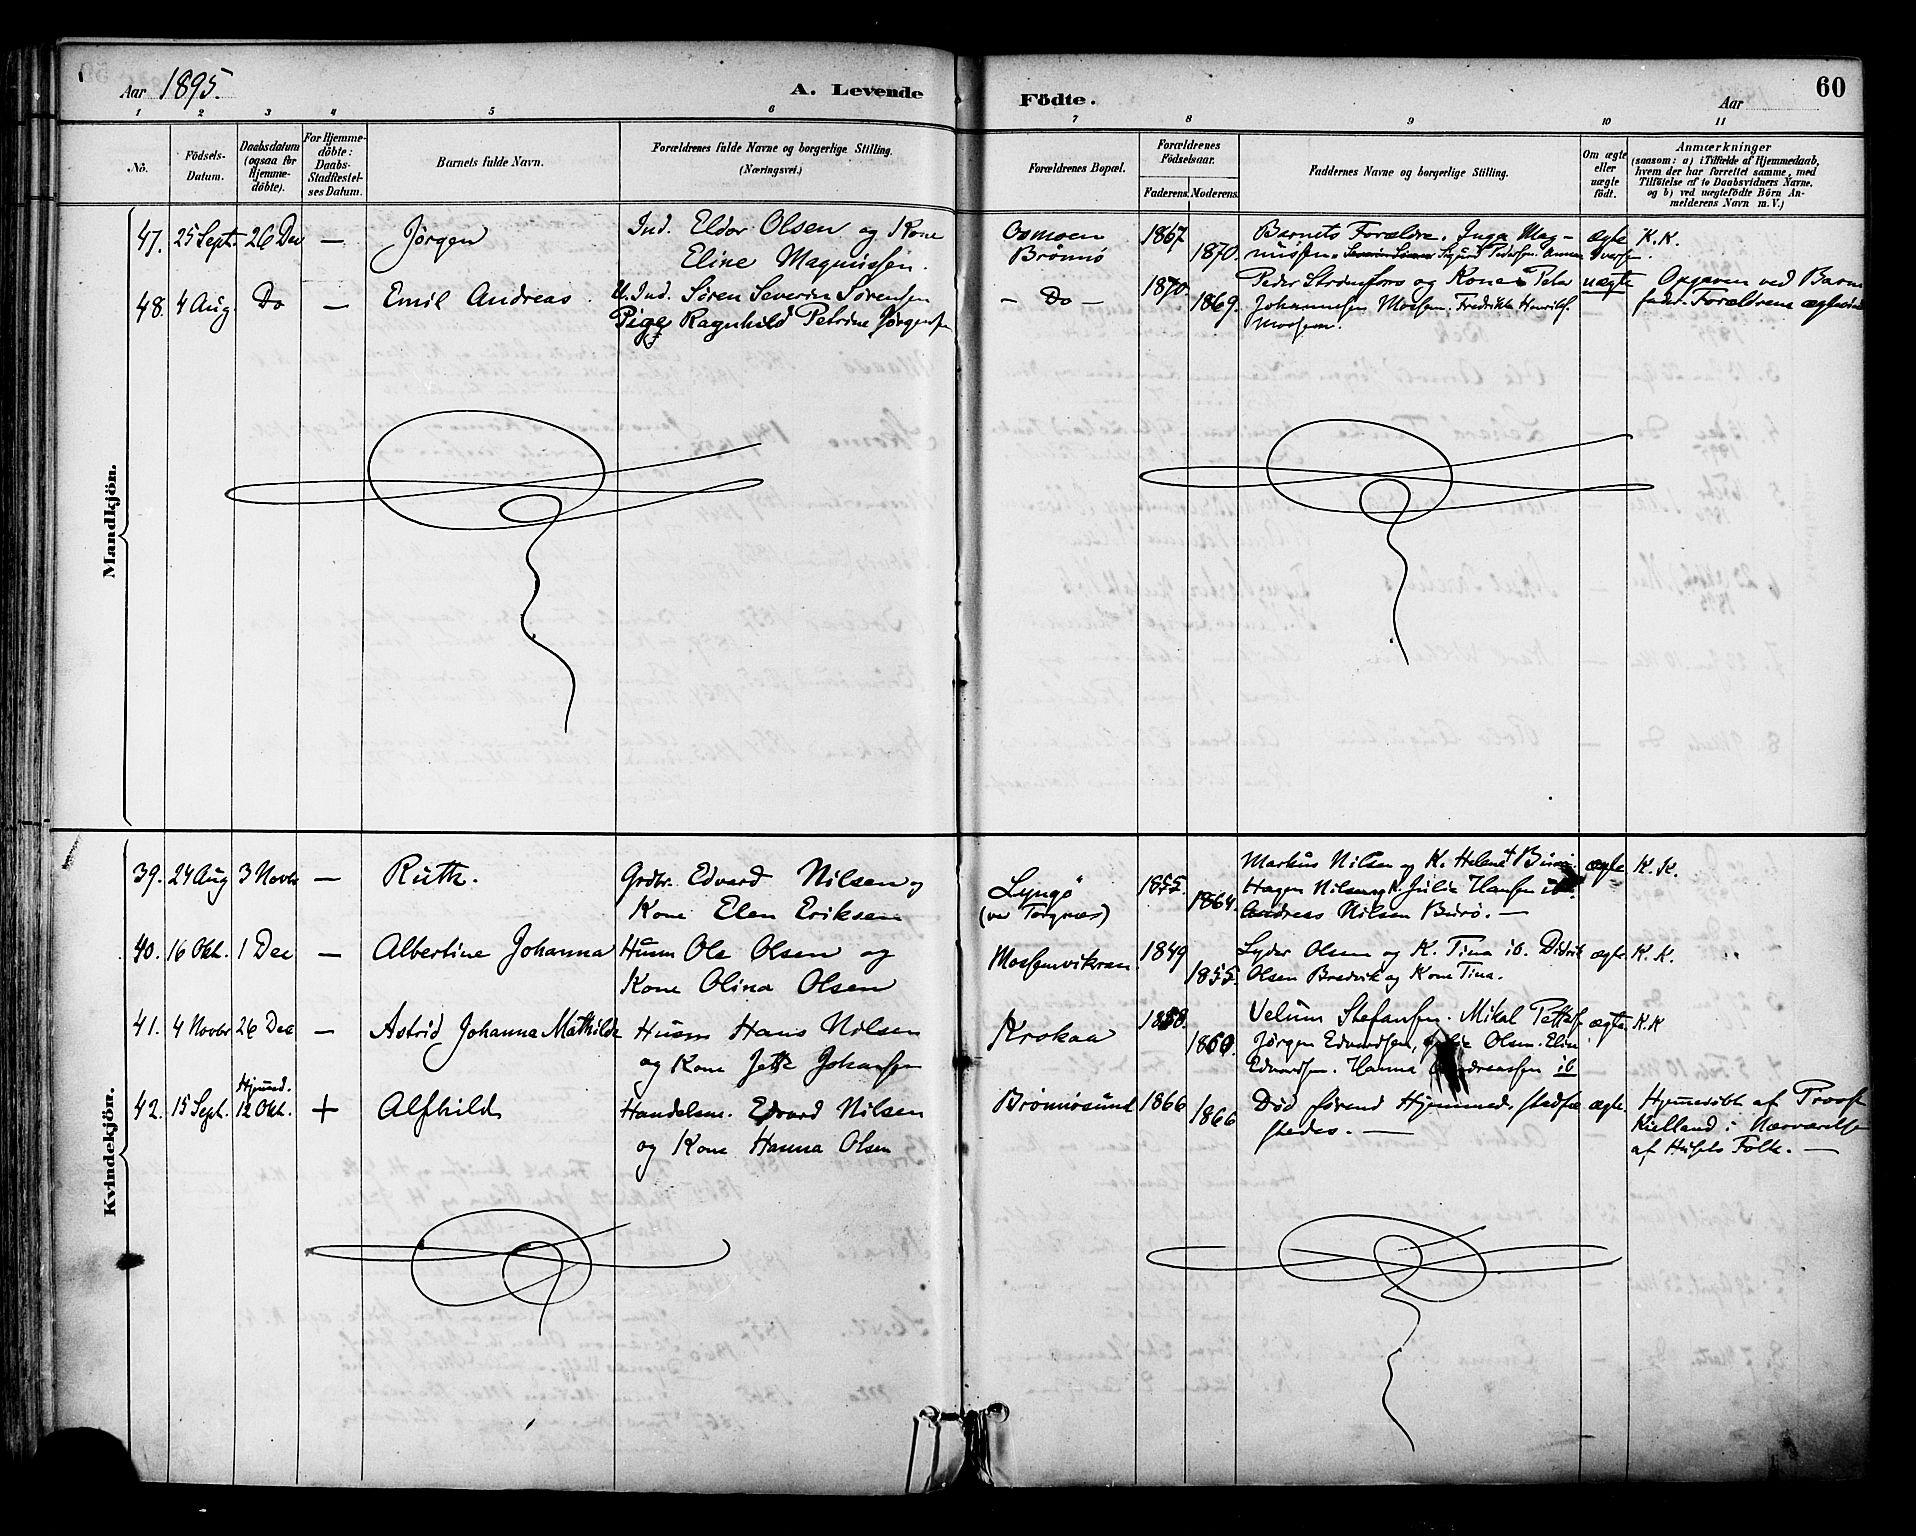 Aar 1895.
A. Levende Födte.
Aar
60
1 2 3 4 5 6 7 8 9 10 11
No.
Födsels-Datum.
Daabsdatum (ogsaa for Hjemme-döbte).
For Hjemme-döbte: Daabs-Stadfestel-ses Datum.
Barnets fulde Navn.
Forældrenes fulde Navne og borgerlige Stilling.
(Næringsvei.)
Forældrenes Bopæl.
Forældrenes Födselsaar.
Faderens. Moderens.
Faddernes Navne og borgerlige Stilling.
Om ægte eller uægte födt.
Anmærkninger
(saasom: a) i Tilfælde af Hjemmedaab,
hvem der har forrettet samme, med
Tilföielse af to Daabsvidners Navne,
og b) ved uægtefödte Börn An-
melderens Navn m. V.)
Mandkjön.
47. 25 Sept. 26 Dec — Jørgen Ind. Eldor Olsen og Kone Osmoen 1867 Barnets Forældre. Inga Mag- ægte K.K.
Eline Magnussen. Brönnö 1870. nussen. Sigurd Pedersen.
48. 4 Aug. Do — Emil Andreas. U. Ind. Sören Severin Sörensen — Do — 1870. Peder Strömfors og Kone. Peter uægte Opgiven ved Barne
Pige Ragnhild Petrine Jørgensen 1869. Johannesen Moesem. Fredrikke Henriks.
fader. Forældrene
Moesem.
Kvindekjön.
39. 24 Aug 3 Novbr — Ruth. Grdbr. Edvard Nilsen og Lyngö 1855. Markus Nilsen og K. Helene ægte K.K.
Kone Elen Eriksen (ved Torgnæs) 1864. Hagen Nilsen og K. Julie Hansen ib.
Andreas Nilsen Burö. —
40. 16 Okt. 1 Dec — Albertine Johanna Husm Ole Olsen og Mosemvikran 1849 Lyder Olsen og K. Tina ib. Didrik ægte K.K.
Kone Olina Olsen 1855. Olsen Bredvik og Kone Tina.
41. 4 Novbr 26 Dec — Astrid Johanna Mathilde Husm Hans Nilsen Krokaa 1858. Velum Stefansen. Mikal ægte K.K
og Kone Jette Johansen 1860. Jørgen Edvardsen, Olsen. Eline
Edvardsen. Hanna Andreassen ib
42. 15 Sept. Hjemmed. 12 Okt. + Alfhild Handelsm. Edvard Nilsen Brönnösund 1866 Död förend Hjemmed. stadfæ ægte. Hjemmedöbt af Provst
og Kone Hanna Olsen 1866 stedes. — Kielland i Nærværelse
af Husets Folk. —